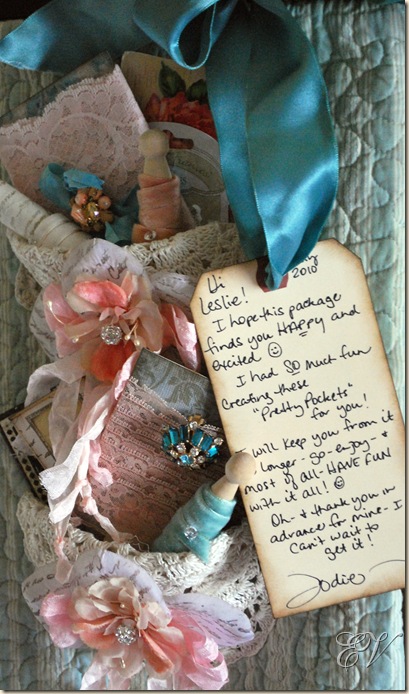 2010
Hi
Leslie!
I hope this package
finds you HAPPY and
excited ☺
I had SO much fun
creating these
"Pretty Pockets"
for you!
I will keep you from it
longer - go - enjoy - &
most of all - HAVE FUN
with it all! ☺
Oh - & thank you in
advance for mine - I
can't wait to
get it!
Jodie
EV